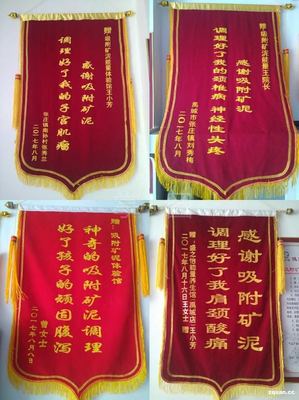 赠:吸附矿泥能量体验馆王小芳
感谢吸附矿泥
调理好了我的子宫肌瘤
张庄镇南孙村张秀兰
二〇一七年八月
赠:吸附矿泥能量王院长
感谢吸附矿泥
调理好了我的颈椎病 神经性头疼
禹城市张庄镇刘秀梅
二〇一七年八月
赠:吸附矿泥体验馆
神奇的吸附矿泥调理
好了孩子的顽固腹泻
曹女士
二〇一七年八月八日
感谢吸附矿泥
调理好了我肩颈酸痛
王小芳
二〇一七年八月十六日王女士 赠
zqsxn.cc